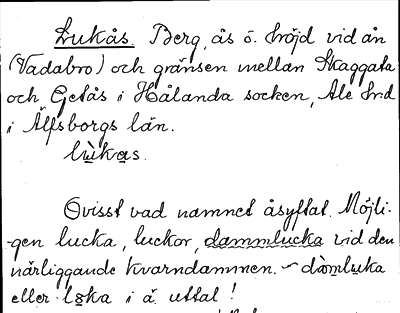 Lukås. Berg, ås o. höjd vid ån
(Vadabro) och gränsen mellan Skaggata
och Getås i Hålanda socken, Ale h:d
i Älfsborgs län.
lùkas.
Ovisst vad namnet åsyftat. Möjli-
gen lucka, luckor, dammlucka vid den
närliggande kvarndammen. – dàmluka
eller loka i ä. uttal!